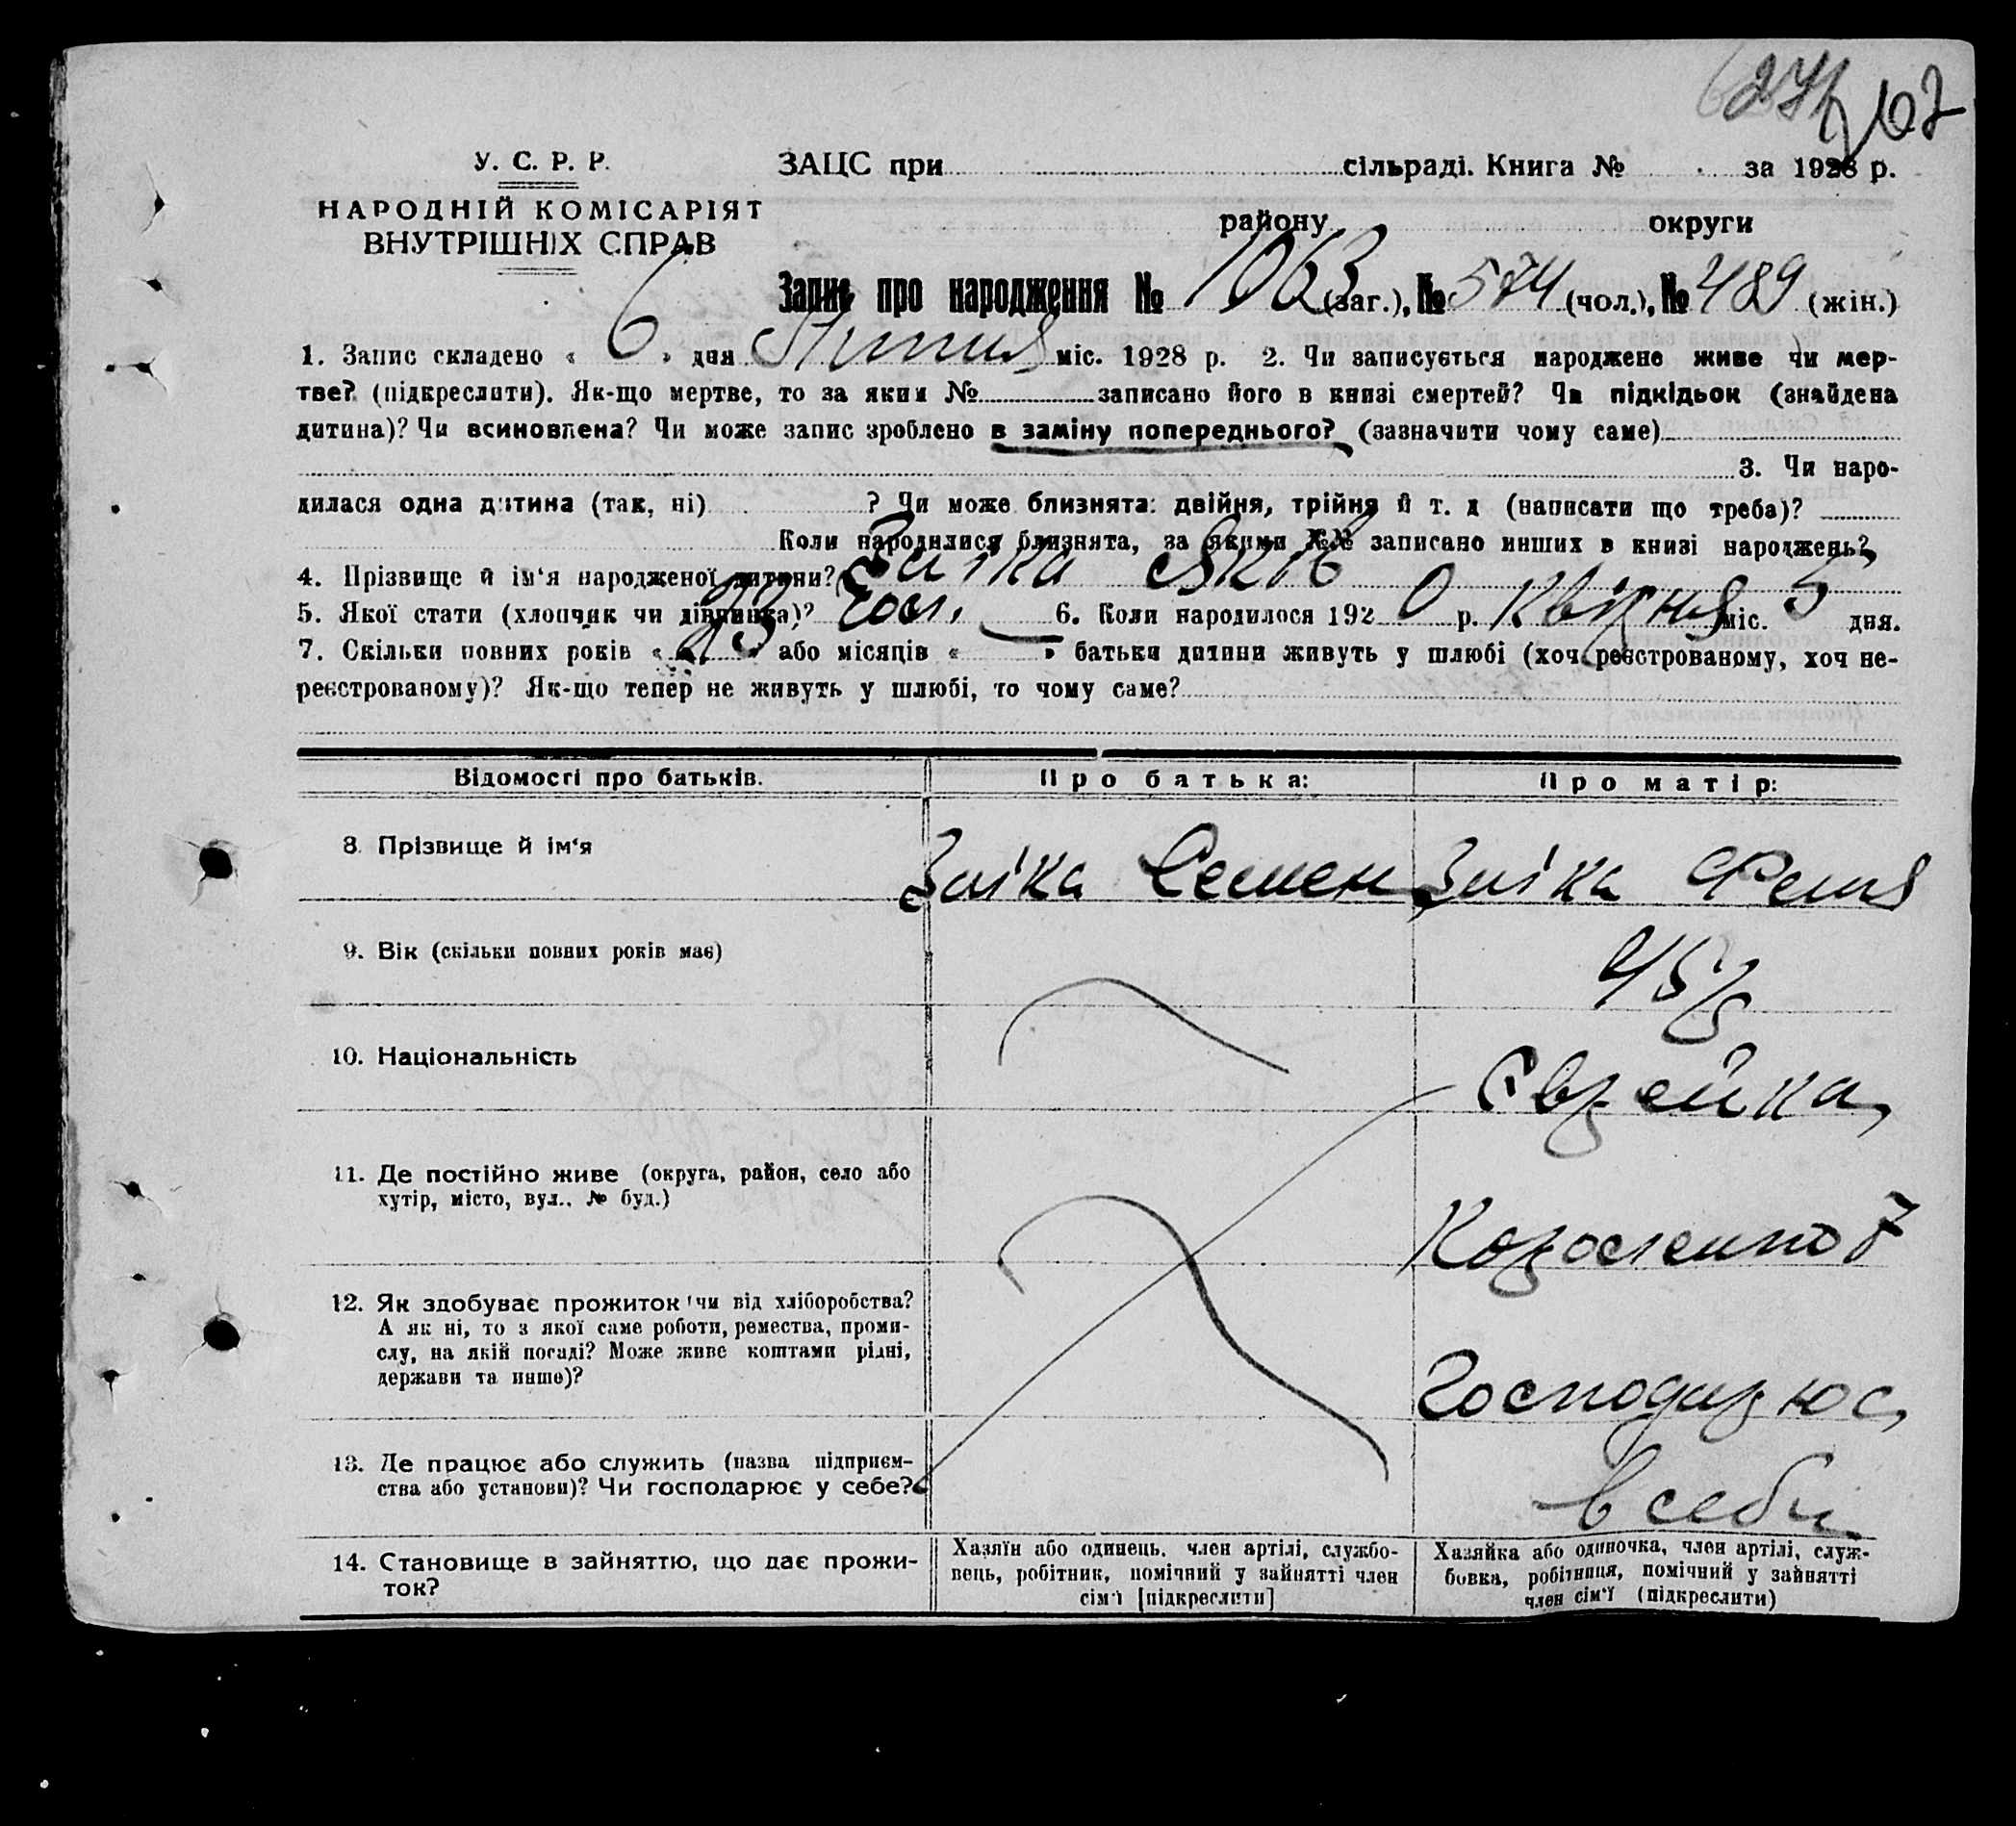 267
У. С. Р. Р.
НАРОДНІЙ КОМІСАРІЯТ
ВНУТРІШНІХ СПРАВ
ЗАЦС при сільраді. Книга № за 1928 р.
району округи
Запис про народження № 1063 (заг.), № 574 (чол.), № 489 (жін.)
1. Запис складено « 6 » дня Липня міс. 1928 р. 2. Чи записується народжене живе чи мер-
тве? (підкреслити). Як-що мертве, то за яким № записано його в книзі смертей? Чи підкідьок (знайдена
дитина)? Чи всиновлена? Чи може запис зроблено в заміну попереднього? (зазначити чому саме)
3. Чи наро-
дилася одна дитина (так, ні) ? Чи може близнята: двійня, трійня й т. д (написати що треба)?
Коли народилися близнята, за якими №№ записано инших в книзі народжень?
4. Прізвище й ім'я народженої дитини? Зміка Яків
5. Якої стати (хлопчик чи дівчинка)? чол. 6. Коли народилося 1920 р. Квітня міс. 5 дня.
7. Скільки повних років « » або місяців « » батьки дитини живуть у шлюбі (хоч реєстрованому, хоч не-
реєстрованому)? Як-що тепер не живуть у шлюбі, то чому саме?
Відомості про батьків. Про батька: Про матір:
8. Прізвище й ім'я Зміка Семен Зміка Феня
9. Вік (скільки повних років має) 45
10. Національність Єврейка
11. Де постійно живе (округа, район, село або
хутір, місто, вул., № буд.)
12. Як здобуває прожиток чи від хліборобства?
А як ні, то з якої саме роботи, ремества, проми-
слу, на якій посаді? Може живе коштами рідні,
держави та инше)?
Господарює
13. Де працює або служить (назва підприєм-
ства або установи)? Чи господарює у себе?
в себе
14. Становище в зайняттю, що дає прожи-
ток?
Хазяїн або одинець, член артілі, службо-
вець, робітник, помічний у зайнятті член
сім'ї [підкреслити]
Хазяйка або одиночка, член артілі, служ-
бовка, робітниця, помічний у зайнятті
член сім'ї (підкреслити)